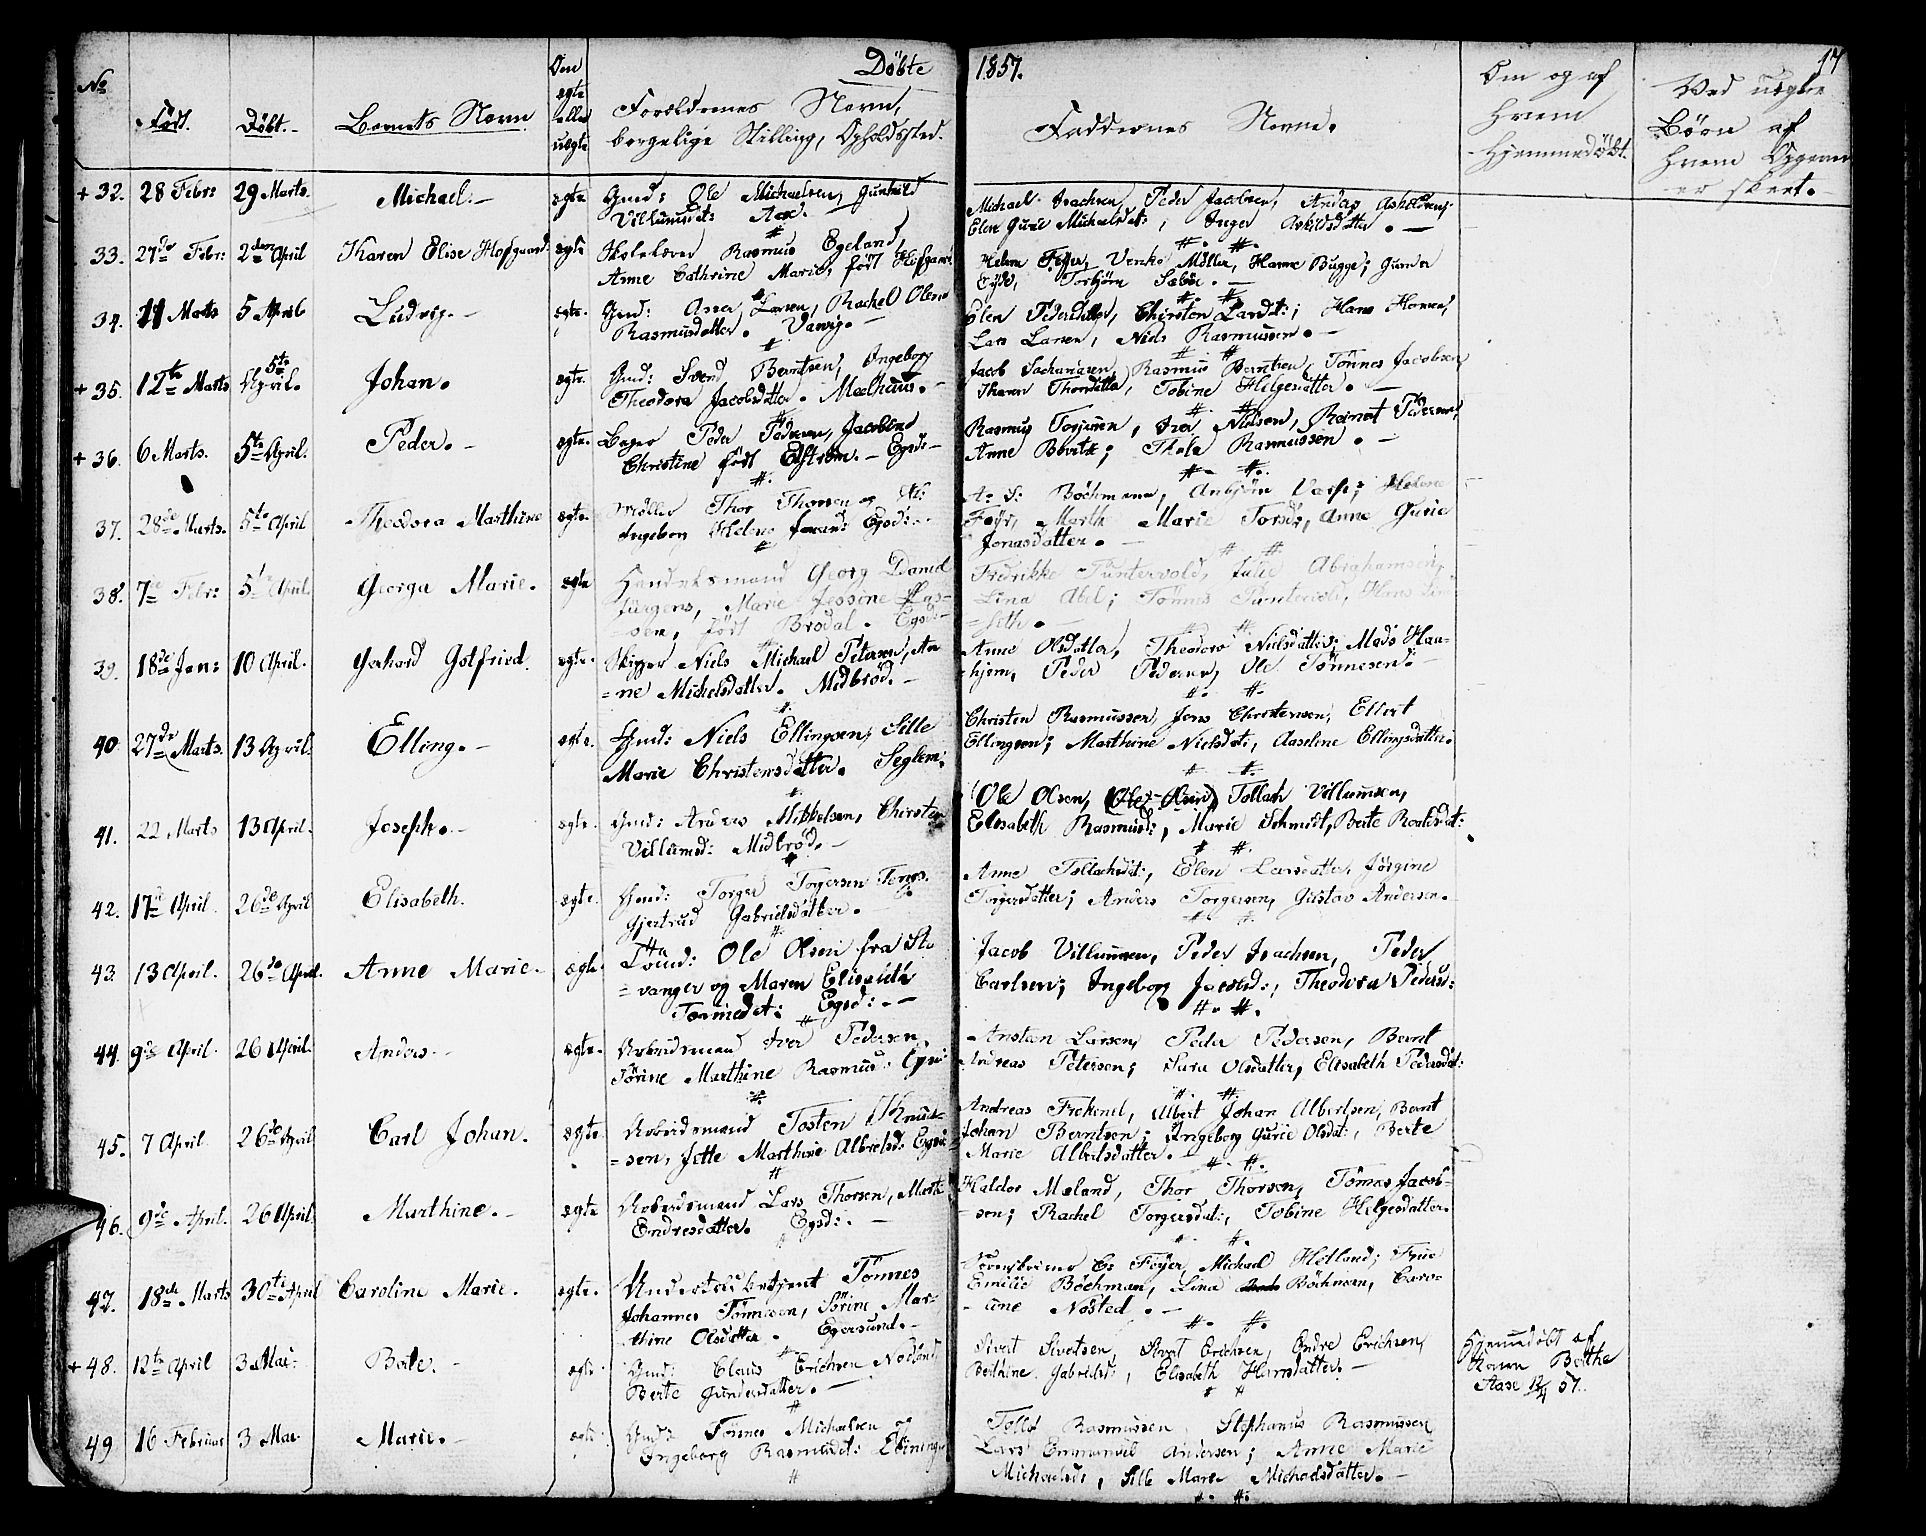 Döbte 1857. 17
No Född. Döbt. Barnets Navn Om ægte eller uægte Forældrenes Navn, borgelige Stilling, Opholdssted. Faddernes Navne. Om og af hvem Hjemmedöbt. Ved uægte Börn af hvem Opgaven er skeet.
+ 32. 28 Febr: 29 Marts. Michael. ægte Gmd: Ole Michaelsen, Gunhild
Villumsdt: Aase.
Michael Isachsen, Peder Jacobsen, Andas
Elen Gurie Michaelsdt:, Inger Askildsdatter.
33. 27de Febr: 2den April Karen Elise Hofgaard. ægte Skolelærer Rasmus Egeland,
Anne Cathrine Marie, född Hofgaard
Helene Feyer, Venke Möller, Hanne Bugge; Gunder
Eyde, Torbjörn Sæböe.
34. 11 Marts 5 April Ludvig. ægte. Gmd: Asser Larsen, Rachel Olene
Rasmusdatter. Varvig.
Elen Pedersdatter, Chirsten Larsdt:; Hans Hansen,
Lars Larsen, Niels Rasmussen.
+ 35. 12te Marts 5te April. Johan. ægte. Gmd: Svend Berntsen, Ingeborg
Theodora Jacobsdatter. Mælhuus.
Jacob Sachariasen, Rasmus Berntsen, Tönnes Jacobsen
Karen Thorsdatter, Tobine Helgesdatter.
+ 36. 6 Marts. 5te April. Peder. ægte. Bager Peder Pedersen, Jacobine
Christine född Edström. Egsd:
Rasmus Torjusen, Iver Nielsen, Reinert Pedersen,
Anne Thala Rasmussen.
37. 28de Marts. 5te April Theodora Marthine ægte. Möller Thor Thorsen og
Ingeborg Helene Egsd:
A: S: Böchmann, Helene
Feyer, Marth Marie Anne Gurie
Jonasdatter.
38. 7de Febr: 5te April. Georga Marie. ægte Handelsmand Georg Daniel
Jürgens, Marie Jessine Claus-
sen, född Brodal. Egsd:
Fredrikke Puntervold, Julie Abrahamsen,
Lina Abel; Tönnes Puntervold, Hans
seth.
39. 18de Jan: 10 April. Gerhard Gotfried. ægte. Skipper Niels Michael Petersen, An-
ne Michelsdatter. Midbröd.
Anne Olsdatter, Theodora Nielsdatter; Mads Hau-
hjem, Peder Pedersen, Ole Tönnesen.
40. 27de Marts. 13 April. Elling. ægte. Gmd: Niels Ellingsen, Sille
Marie Christensdatter. Seglem.
Christen Rasmussen, Jens Christensen, Ellert
Ellingsen; Marthine Nielsdt:, Aaseline Ellingsdatter.
41. 22 Marts 13 April. Joseph. ægte. Gmd: Anders Mikkelsen, Chirsten
Villumsd: Midbröd.
Ole Olsen, Tollach Villumsen,
Elisabeth Rasmusd:, Marie Schmidt, Berte Roaldsdt:
42. 17de April. 26de April Elisabeth. ægte. Gmd: Torger Torgersen
Gjertrud Gabrielsdatter.
Anne Tollachsdt:, Elen Larsdatter, Jörgine
Torgersdatter; Anders Torgersen, Gustav Andersen.
43. 13 April. 26de April. Anne Marie. ægte. Ole Olsen fra Sta-
vanger og Maren Elisabeth
Egsd:
Jacob Villumsen, Peder Isachsen, Peder
Carlsen; Ingeborg Jacobsd:, Theodora Pedersd:
44. 9de April. 26 April. Anders. ægte. Arbeidsmand Iver Pedersen,
Törine Marthine Rasmusd: Egsd:
Ansteen Larsen, Peder Pedersen, Bernt
Andreas Petersen; Sara Olsdatter, Elisabeth Pedersdat:
45. 7 April. 26de April Carl Johan. ægte. Arbeidsmand Tosten Knud-
sen, Jette Marthine Albretsd: Egsd:
Andreas Frekenel, Albert Johan Albertsen, Bernt
Johan Berntsen; Ingeborg Gurie Olsdt:, Berte
Marie Albertsdatter.
46. 9de April. 26 April. Marthine. ægte Arbeidsmand Lars Thorsen, Marth
Endresdatter. Egsd:
Haldor Mæland, Thor Thorsen, Tönnes Jacob-
sen; Rachel Torgersdt:, Tobine Helgesdatter.
47. 18de Marts 30te April Caroline Marie. ægte. Undertoldbetjent Tönnes
Johannes Tönnesen, Sörine Mar-
thine Olsdatter. Egersund.
C: Feyer, Michael Hetland; Frue
Emilie Böchman, Lina Böchman, Caro-
line Nösted.
+ 48. 12te April 3 Mai. Berte. ægte Gmd: Claus Erichsen Nodland
Berte Gundersdatter.
Sivert Sivertsen, Sivert Erichsen, Endre Erichsen,
Berthine Gabrielsd:, Elisabeth Hansdatter.
Hjemmedöbt af
Karen Berthe
Aase 12/4 57.
49 16 Februar 3 Mai Marie. ægte Gmd: Tönnes Michaelsen
Ingeborg Rasmusdt:
Tollef Rasmussen, Stephanus Rasmussen,
Lars Emmanuel Andersen; Anne Marie
Michaelsdt:, Sille Marie Michaelsdatter.